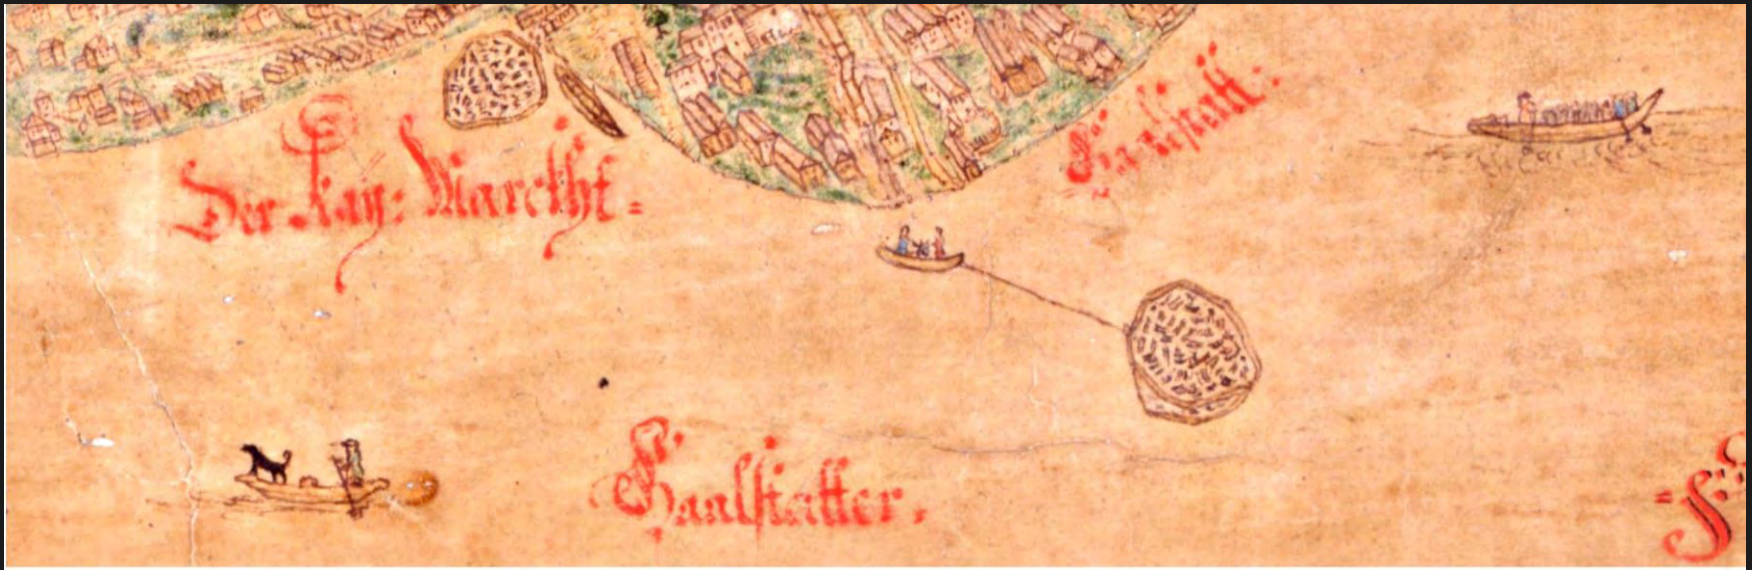 Der Kay: Marckht =
Haalstatt:
Haalstatter.
= S